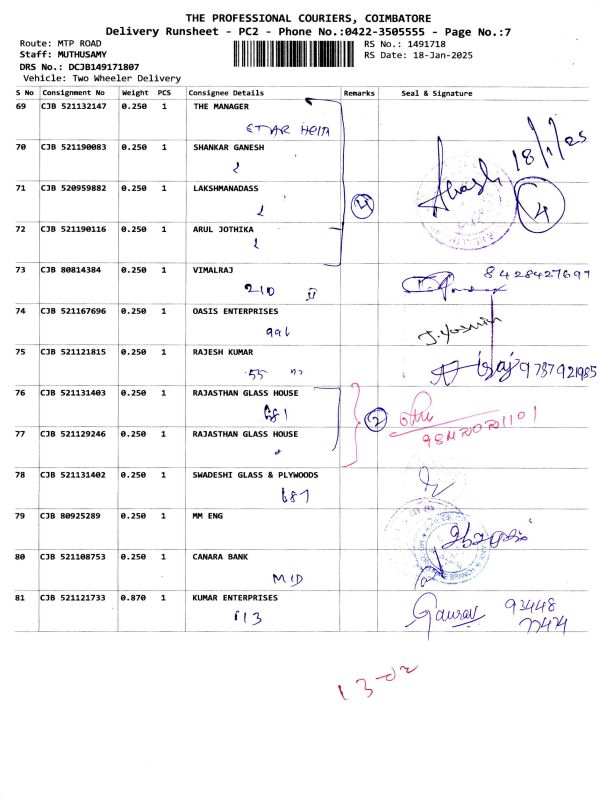 THE PROFESSIONAL COURIERS, COIMBATORE
Delivery Runsheet - PC2 - Phone No.:0422-3505555 - Page No.:7
Route: MTP ROAD
RS No.: 1491718
Staff: MUTHUSAMY
RS Date: 18-Jan-2025
DRS No.: DCJB149171807
Vehicle: Two Wheeler Delivery
S No Consignment No Weight PCS Consignee Details Remarks Seal & Signature
69 CJB 521132147 0.250 1 THE MANAGER
70 CJB 521190083 0.250 1 SHANKAR GANESH
18/1/25
71 CJB 520959882 0.250 1 LAKSHMANADASS
4 4
72 CJB 521190116 0.250 1 ARUL JOTHIKA
73 CJB 80814384 0.250 1 VIMALRAJ
210 II 8428427697
74 CJB 521167696 0.250 1 OASIS ENTERPRISES
991
75 CJB 521121815 0.250 1 RAJESH KUMAR
55 9787921985
76 CJB 521131403 0.250 1 RAJASTHAN GLASS HOUSE
681 2
77 CJB 521129246 0.250 1 RAJASTHAN GLASS HOUSE
78 CJB 521131402 0.250 1 SWADESHI GLASS & PLYWOODS
687
79 CJB 80925289 0.250 1 MM ENG
80 CJB 521108753 0.250 1 CANARA BANK
MID
81 CJB 521121733 0.870 1 KUMAR ENTERPRISES
613 Gaurav 93448
77474